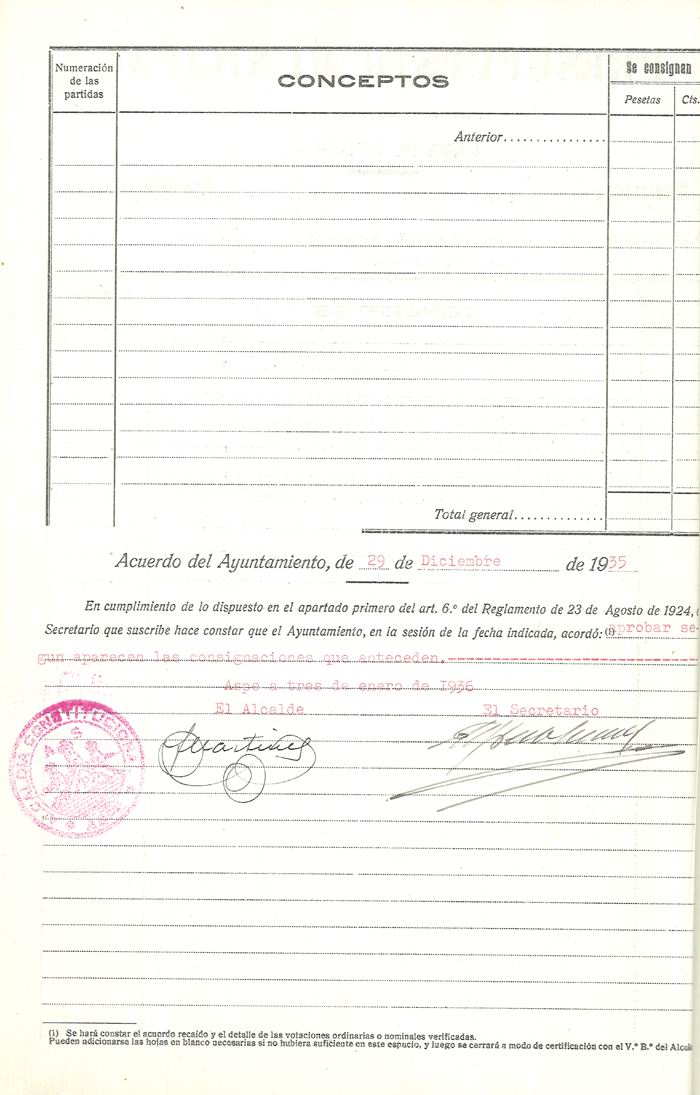 Numeración
de las
partidas
CONCEPTOS
Se consignan
Pesetas
Cts.
Anterior..............
Total general.............
Acuerdo del Ayuntamiento, de 29 de Diciembre de 1935
En cumplimiento de lo dispuesto en el apartado primero del art. 6.º del Reglamento de 23 de Agosto de 1924,
Secretario que suscribe hace constar que el Ayuntamiento, en la sesión de la fecha indicada, acordó: (1) aprobar se-
gun aparecen las consignaciones que anteceden.
Aspe a tres de enero de 1936
El Alcalde
El Secretario
CONSTITUCIONAL
Martinez
(1) Se hará constar el acuerdo recaído y el detalle de las votaciones ordinarias o nominales verificadas.
Pueden adicionarse las hojas en blanco necesarias si no hubiera suficiente en este espacio, y luego se cerrará a modo de certificación con el V.º B.º del Alcal